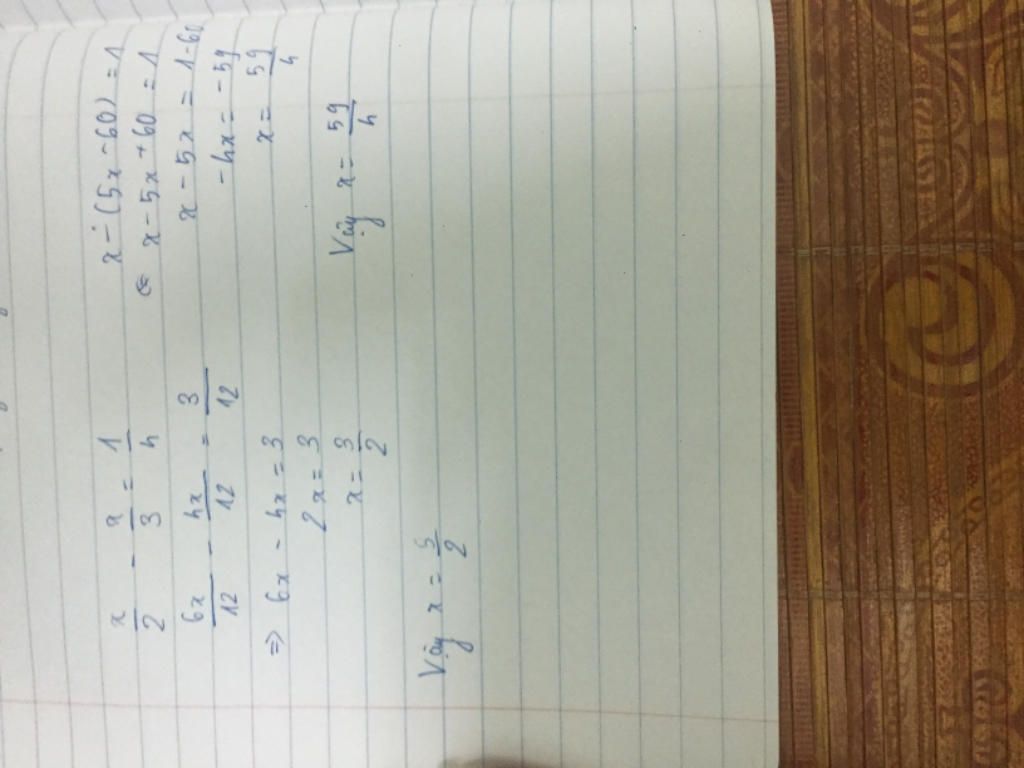 x/2 - x/3 = 1/4
6x/12 - 4x/12 = 3/12
⇒ 6x - 4x = 3
2x = 3
x = 3/2
Vậy x =
x - (5x - 60) = 1
x - 5x + 60 = 1
x - 5x = 1 - 60
- 4x = - 59
x = 59/4
Vậy x = 59/4